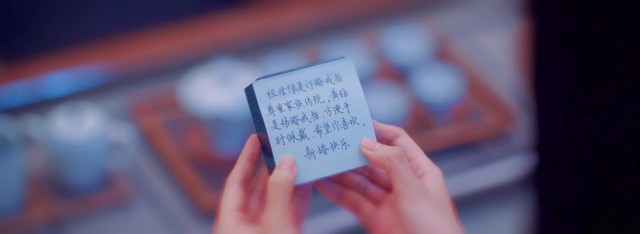 祖母绿是订婚戒指
尊重家族传统,素戒
是结婚戒指,方便平
时佩戴,希望你喜欢。
新婚快乐